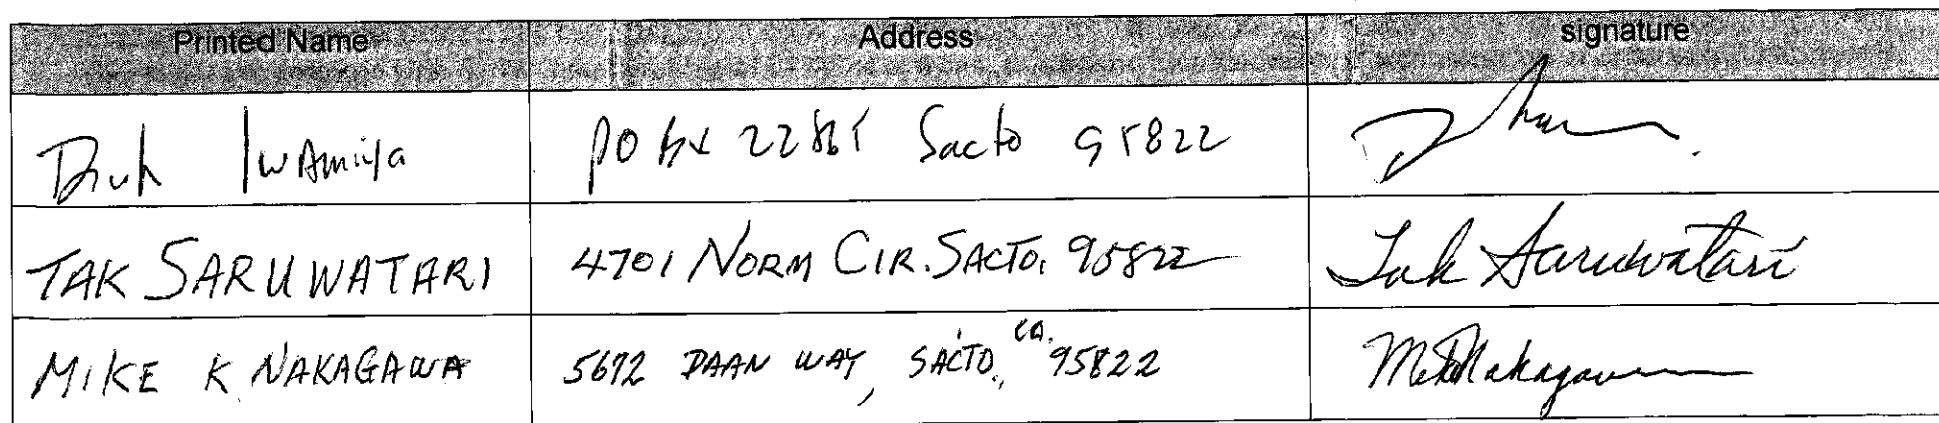 Printed Name Address signature
Iwamiya PO Bx Sacto 95822
TAK SARUWATARI 4701 NORM CIR. SACTO. 95822 Tak Saruwatari
MIKE K NAKAGAWA 5672 DAAN WAY, SACTO., CA. 95822 Nakagawa